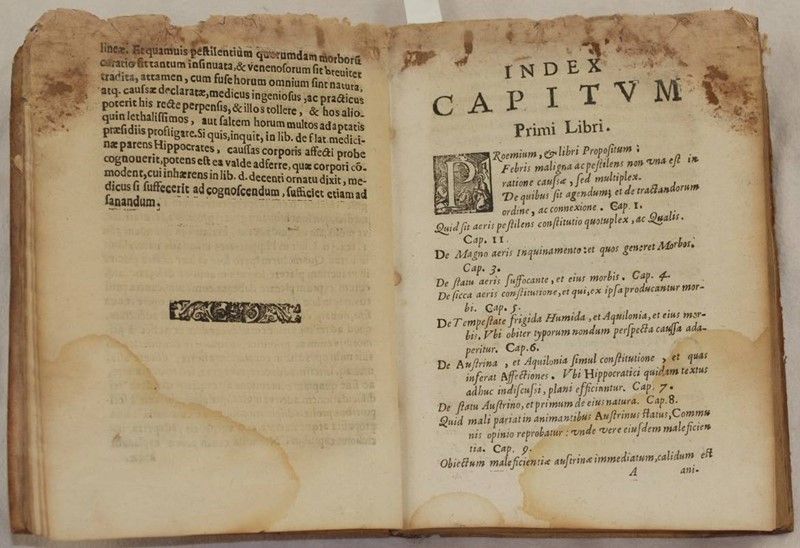 lineæ. Et quamuis pestilentium quorumdam morborũ
curatio sit tantum insinuata, & venenosorum sit breuiter
tradita, attamen, cum fuse horum omnium sint natura,
atq. caussæ declaratæ, medicus ingeniosus, ac practicus
poterit his recte perpensis, & illos tollere, & hos alio-
quin lethalissimos, aut saltem horum multos adaptatis
præsidiis profligare. Si quis, inquit, in lib. de flat. medici-
næ parens Hippocrates, caussas corporis affecti probe
cognouerit, potens est ea valde adferre, quæ corpori cõ-
modent, cui inhærens in lib. d. decenti ornatu dixit, me-
dicus si suffecerit ad cognoscendum, sufficiet etiam ad
sanandum.
INDEX
CAPITVM
Primi Libri.
PRoemium, & libri Propositum:
Febris maligna ac pestilens non vna est in
ratione caussæ, sed multiplex.
De quibus sit agendum; et de tractandorum
ordine, ac connexione. Cap. 1.
Quid sit aeris pestilens constitutio quotuplex, ac Qualis.
Cap. 11
De Magno aeris Inquinamento: et quos generet Morbos.
Cap. 3.
De statu aeris suffocante, et eius morbis. Cap. 4.
De sicca aeris constitutione, et qui, ex ipsa producantur mor-
bi. Cap. 5.
De Tempestate frigida Humida, et Aquilonia, et eius mor-
bis. Vbi obiter typorum nondum perspecta caussa ada-
peritur. Cap. 6.
De Austrina, et Aquilonia simul constitutione, et quas
inferat Affectiones. Vbi Hippocratici quidam textus
adhuc indiscussi, plani efficiuntur. Cap. 7.
De statu Austrino, et primum de eius natura. Cap. 8.
Quid mali pariat in animantibus Austrinus status, Commu
nis opinio reprobatur: vnde vere eiusdem maleficien
tia. Cap. 9.
Obiectum maleficientiæ austrinæ immediatum, calidum est
A ani-